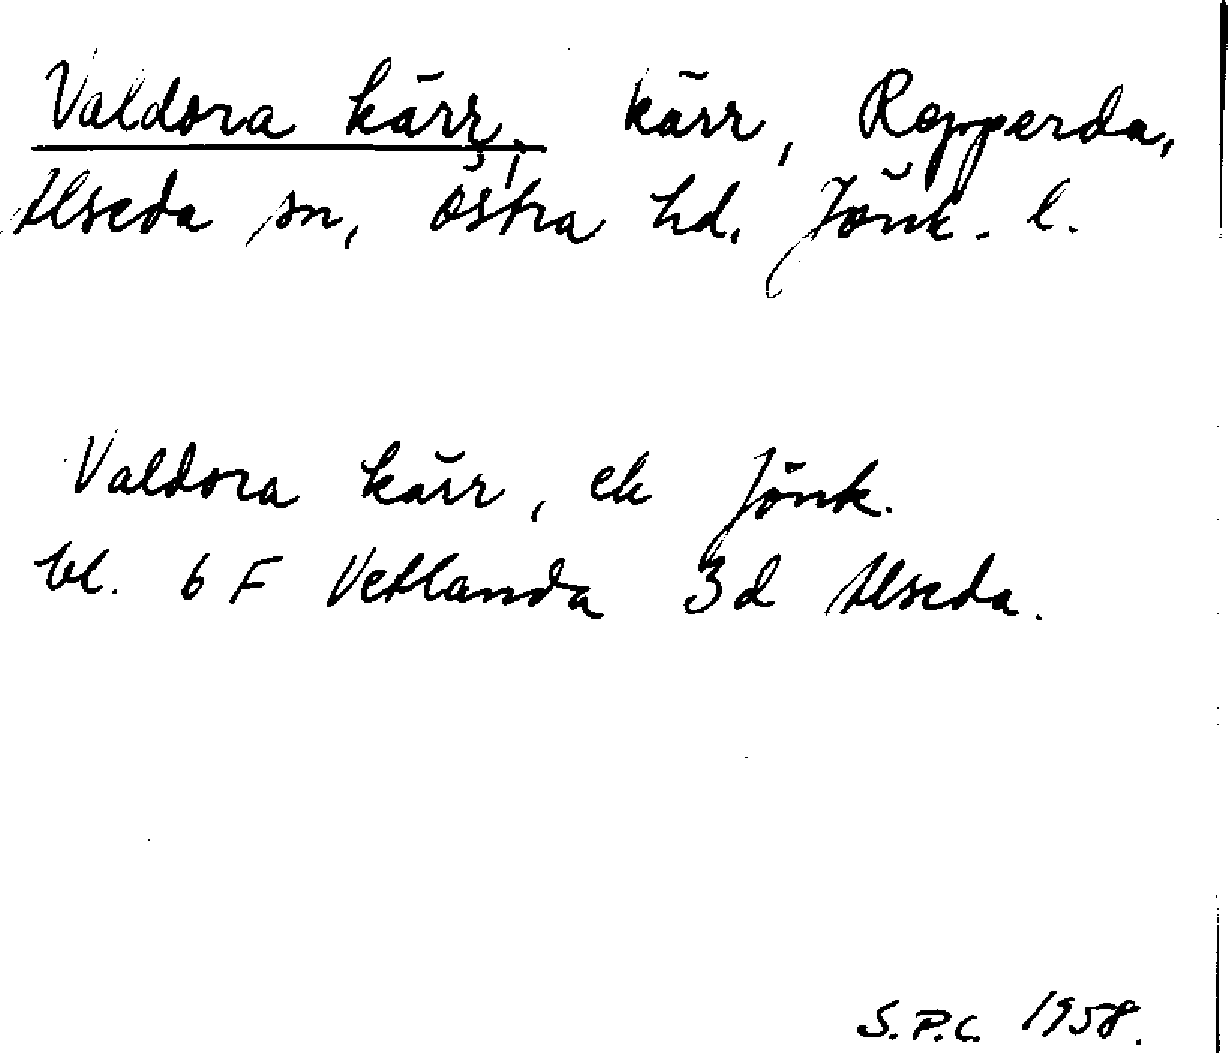 Valdora kärr, kärr, Repperda,
Alseda sn, Östra hd. Jönk. l.
Valdora kärr, ek Jönk.
bl. 6 F Vetlanda 3d Alseda.
S.P.C. 1958.